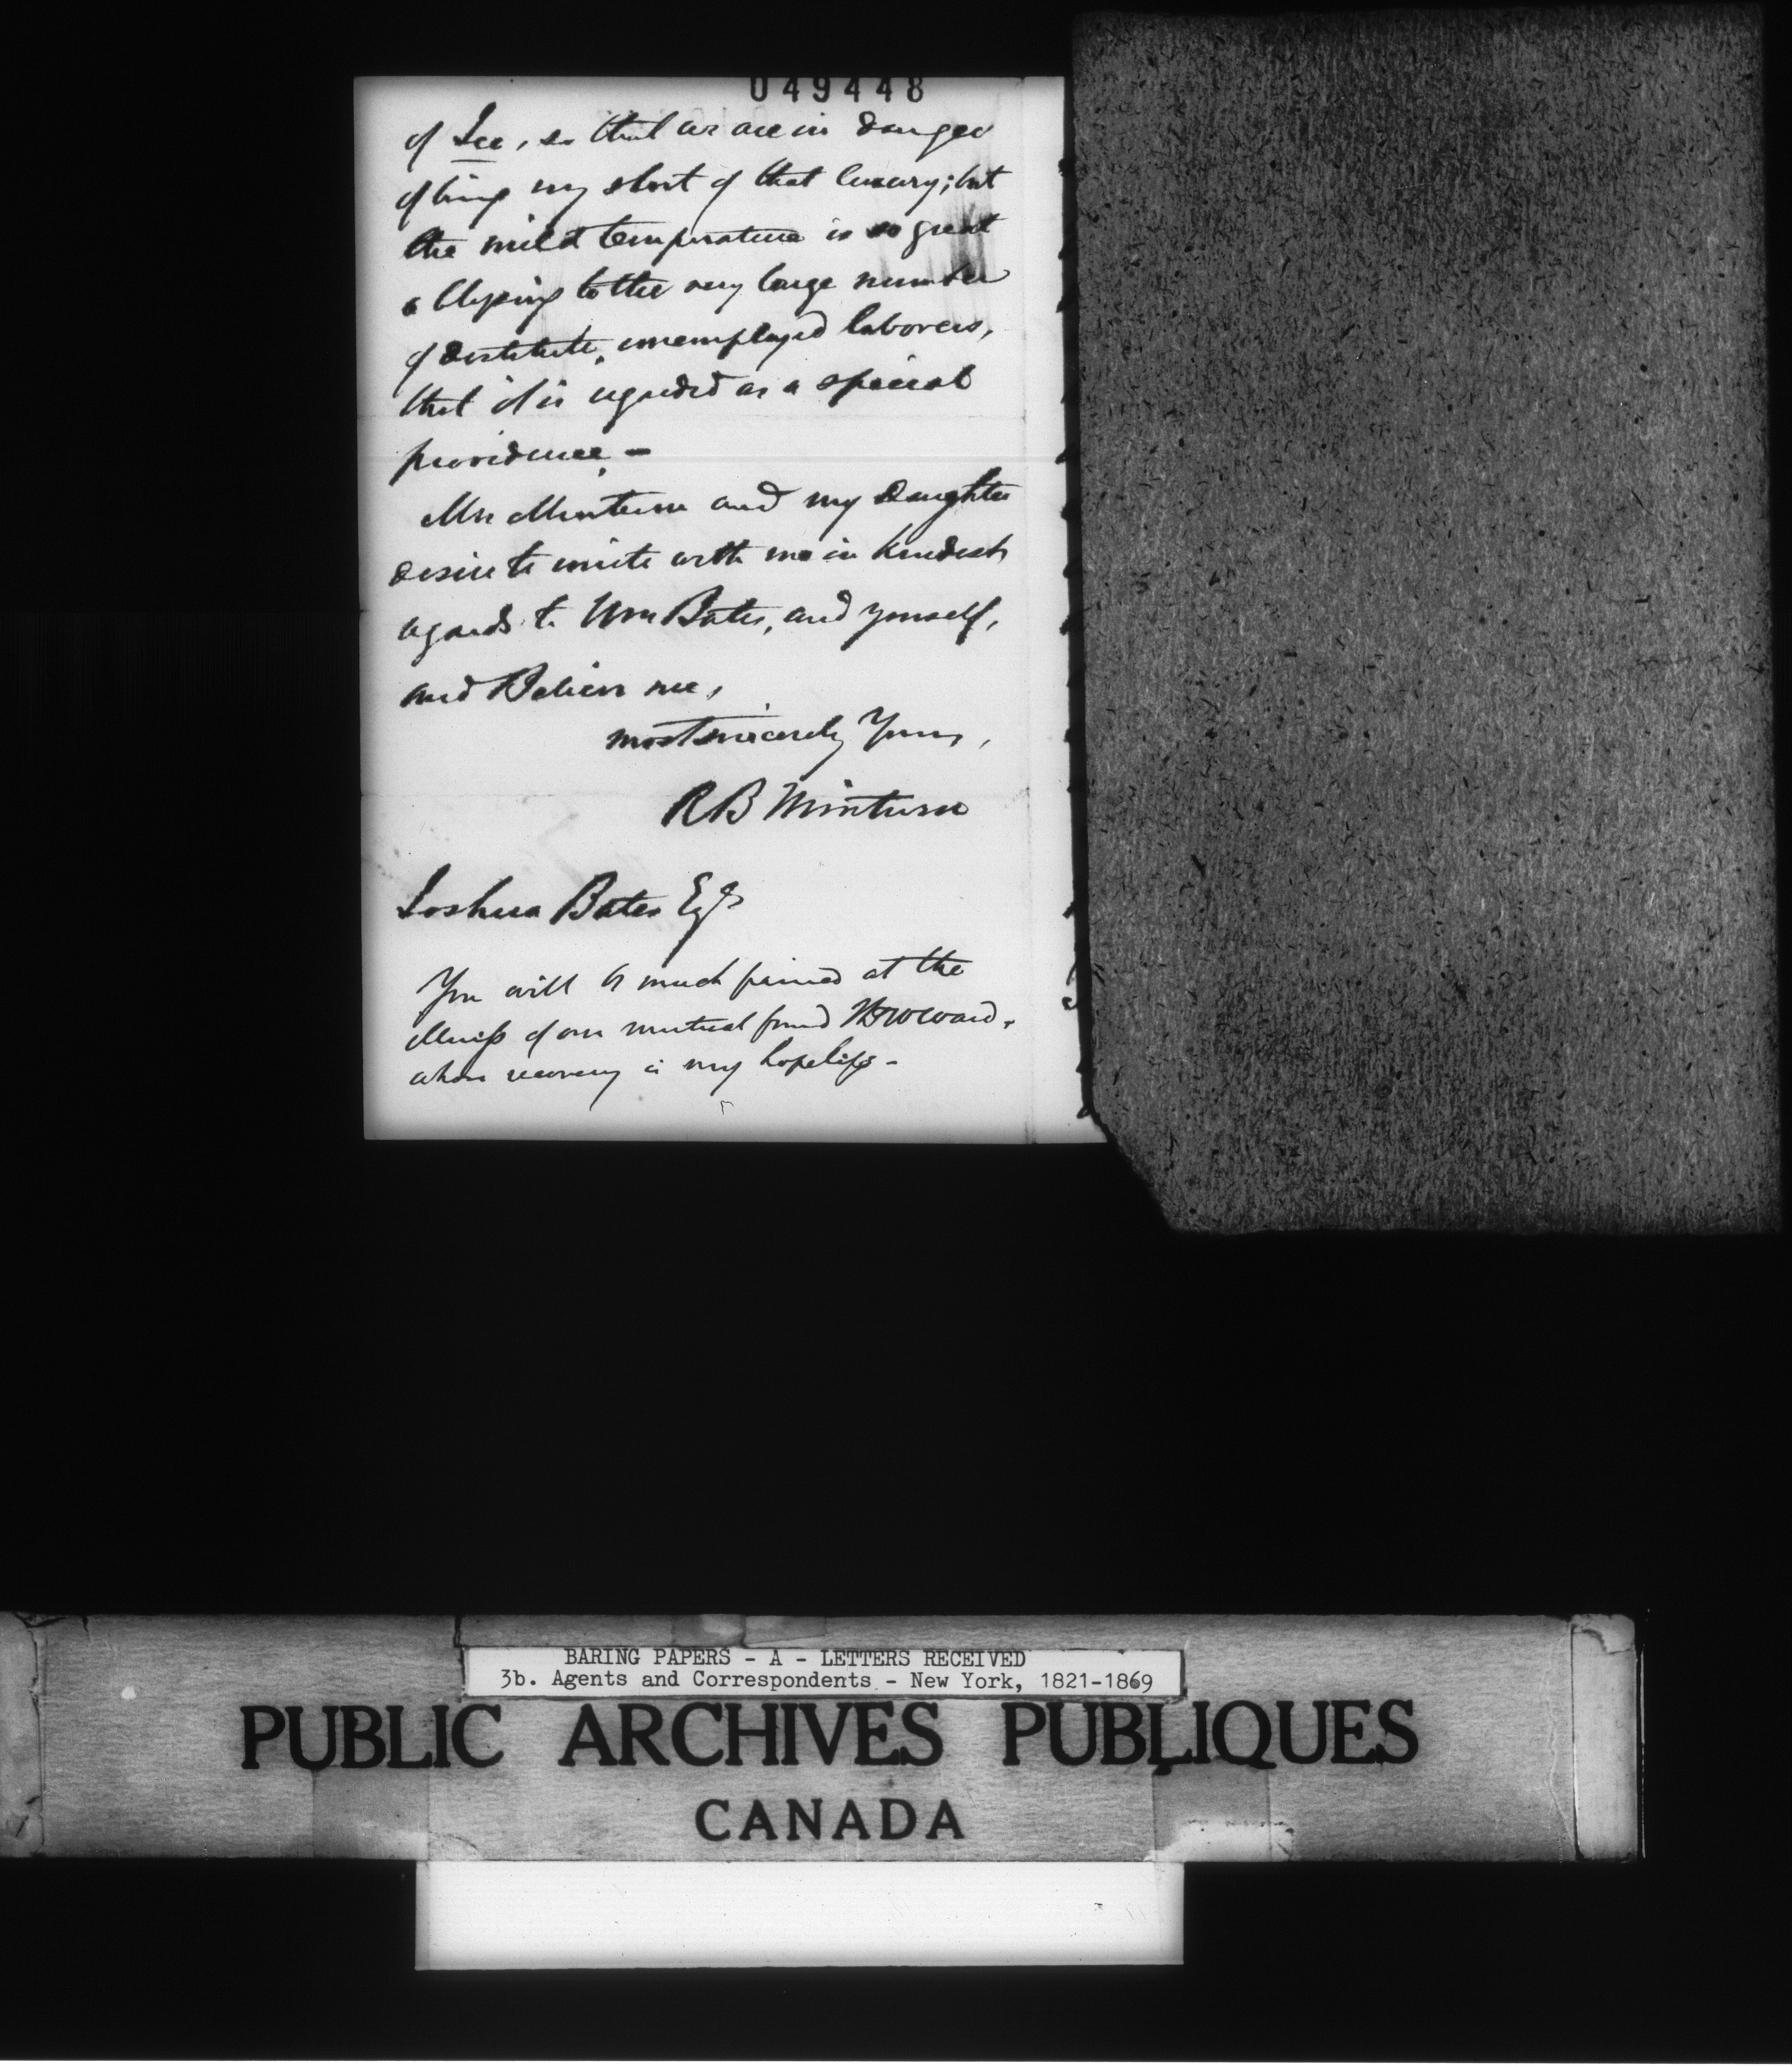 049448
of Ice, so that we are in danger
of being very short of that luxury; but
the mild temperature is so great
a blessing to the very large number
of destitute, unemployed laborers,
that it is regarded as a special
providence. -
Mrs Minturn and my daughter
desire to unite with me in kindest
regards to Mrs Bates, and yourself,
and Believe me,
most sincerely Yours,
R B Minturn
Joshua Bates Esqr
You will be much pained at the
illness of our mutual friend Ward,
whose recovery is very hopeless -
BARING PAPERS - A - LETTERS RECEIVED
3b. Agents and Correspondents - New York, 1821-1869
PUBLIC ARCHIVES PUBLIQUES
CANADA